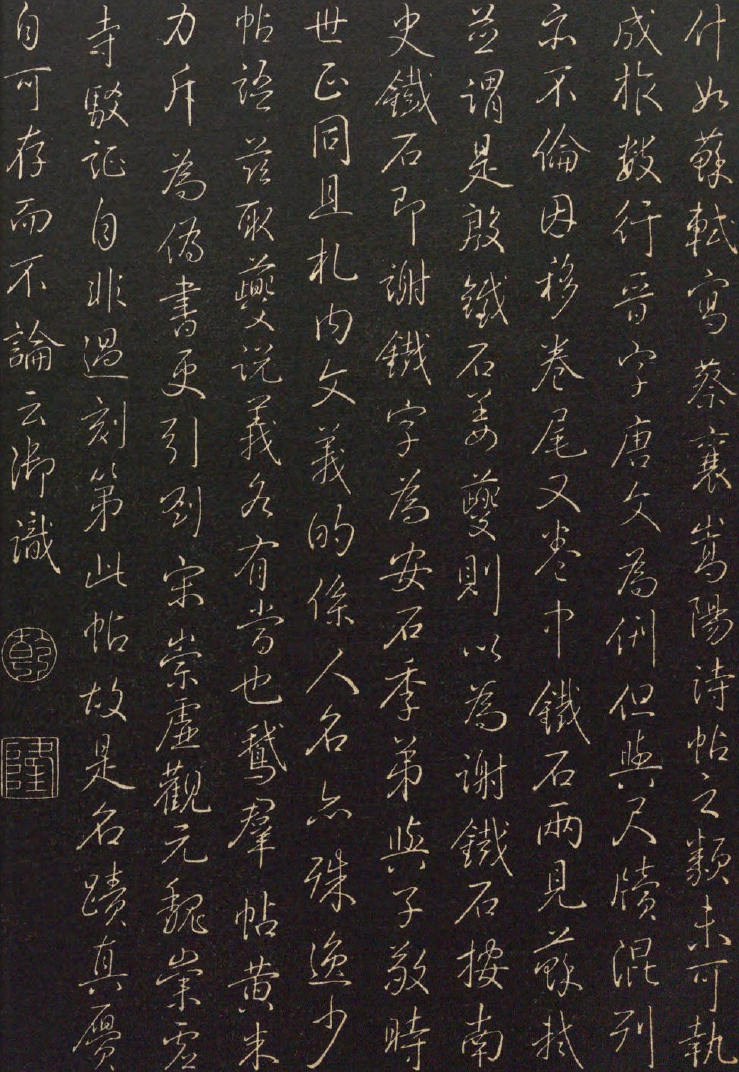 什如蘇軾寫蔡襄嵩陽詩帖之類未可執
成數行晉字唐文為例但與尺牘混列
亦不倫因移卷尾又卷中鐵石兩見蘇軾
並謂是殷鐵石姜夔則以為謝鐵石按南
史鐵石即謝鐵字為安石季弟與子敬時
世正同且札內文義的係人名亦殊逸少
帖語茲取夔說義各有當也鵞羣帖黄米
力斥為偽書更引劉宋崇虛觀元魏崇虛
寺駁証自非過刻第此帖故是名蹟真贗
自可存而不論云御識
乾
隆